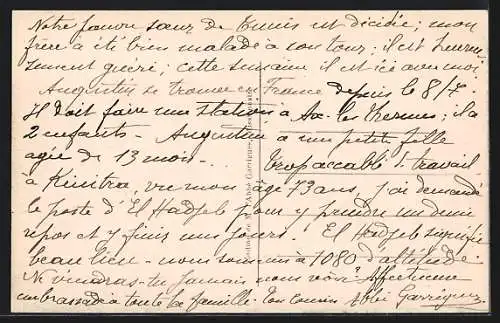 Notre pauvre sœur de Tunis est décidée; mon
frère a été bien malade à son tour; il est heureu-
sement guéri; cette semaine il est ici avec moi
Augustin se trouve en France depuis le 8/7
Il doit faire une station à Ax-les-Thermes; il a
2 enfants - Augustine a une petite fille
agée de 13 mois -
trop accablé d. travail
à Kénitra, vu mon âge 73 ans, j'ai demandé
le poste d'El Hadjeb pour y prendre un demi
repos et y finir mes jours! El Hadjeb signifie
beau lieu - nous sommes à 1080 d'altitude.
Ne viendras-tu jamais nous voir? Affectueux
embrassade à toute la famille. Ton cousin Abbé Garrigues